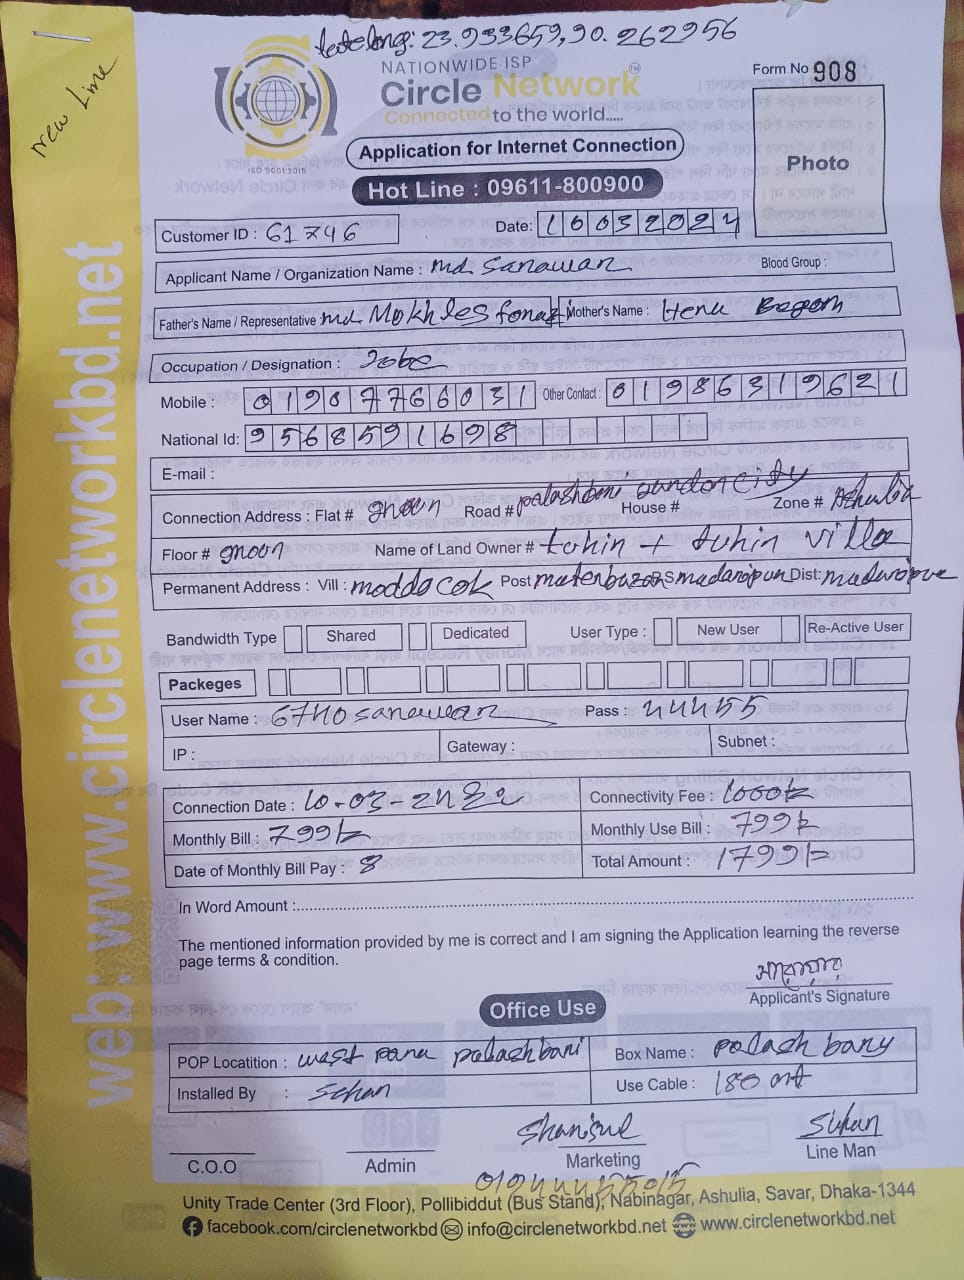 New Line
late long: 23.933659,90.262956
NATIONWIDE ISP
Circle Network
Connected to the world.....
ISO 9001:2015
Form No 908
Photo
Application for Internet Connection
Hot Line : 09611-800900
Customer ID : 61746
Date: 10032024
Applicant Name / Organization Name : md Sanawar
Blood Group :
Father's Name / Representative md Mokhles
Mother's Name : Henu Begom
Occupation / Designation : Jobe
Mobile : 01907766031
Other Contact : 01986319621
National Id: 9568591698
E-mail :
Connection Address : Flat # gnoon Road # palashbari House # Zone # Ashulia
Floor # gnoon Name of Land Owner # tuhin + tuhin villa
Permanent Address : Vill : moddocok Post Dist: madaripur
Bandwidth Type Shared Dedicated User Type : New User Re-Active User
Packeges
User Name : 6740sanawar Pass : 44455
IP : Gateway : Subnet :
Connection Date : 10-03-24 Connectivity Fee : 1000
Monthly Bill : 799 Monthly Use Bill : 799
Date of Monthly Bill Pay : 8 Total Amount : 1799/=
In Word Amount :
The mentioned information provided by me is correct and I am signing the Application learning the reverse
page terms & condition.
Applicant's Signature
Office Use
POP Locatition : west para palashbari Box Name : palash bary
Installed By : Sehan Use Cable : 180 mt
Shanisul Sihan
C.O.O Admin Marketing Line Man
Unity Trade Center (3rd Floor), Pollibiddut (Bus Stand), Nabinagar, Ashulia, Savar, Dhaka-1344
facebook.com/circlenetworkbd info@circlenetworkbd.net www.circlenetworkbd.net
web: www.circlenetworkbd.net